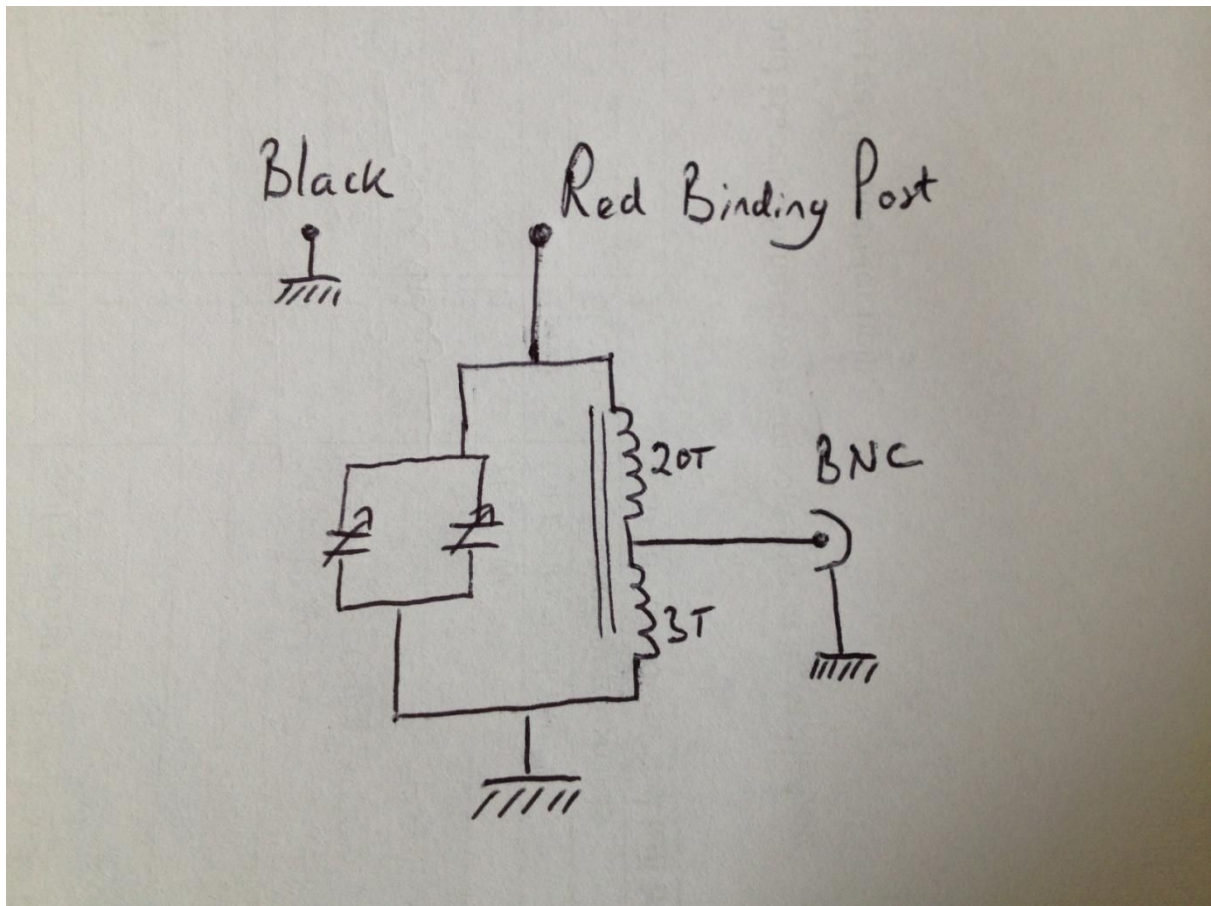 Black
Red Binding Post
20T
BNC
3T